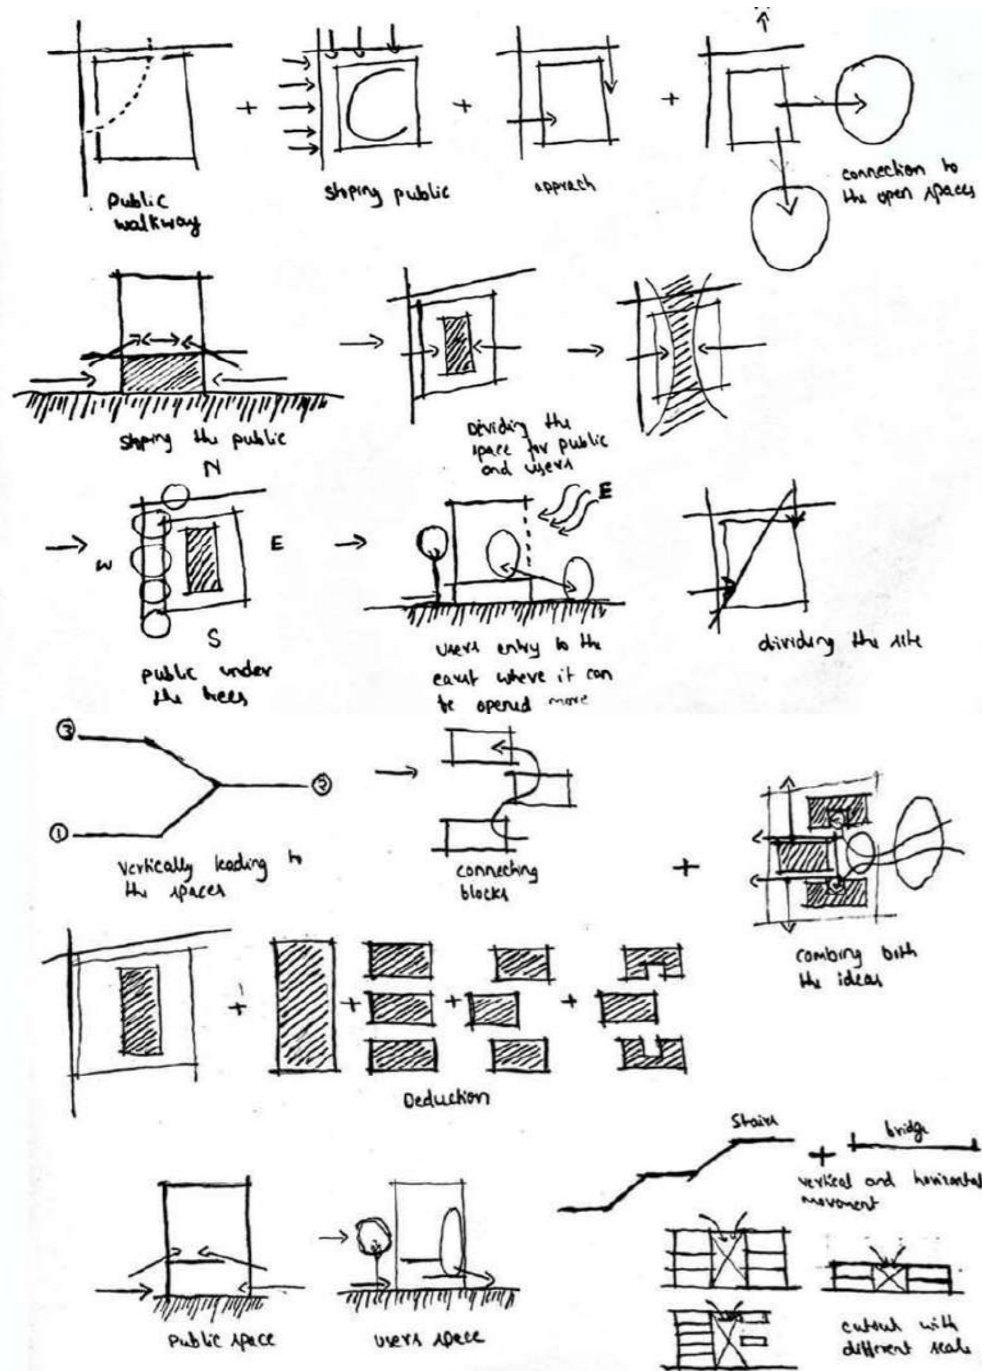 Public
walkway
stoping public
apprach
connection to
the open spaces
stoping the public
Dividing the
space for public
and users
N
W
E
S
public under
the trees
E
users entry to the
east where it can
be opened more
dividing the site
3
1
2
vertically leading to
the spaces
connecting
blocks
combing both
the ideas
Deduction
Stairs
bridge
vertical and horizontal
movement
Public space
users space
cutout with
different scale